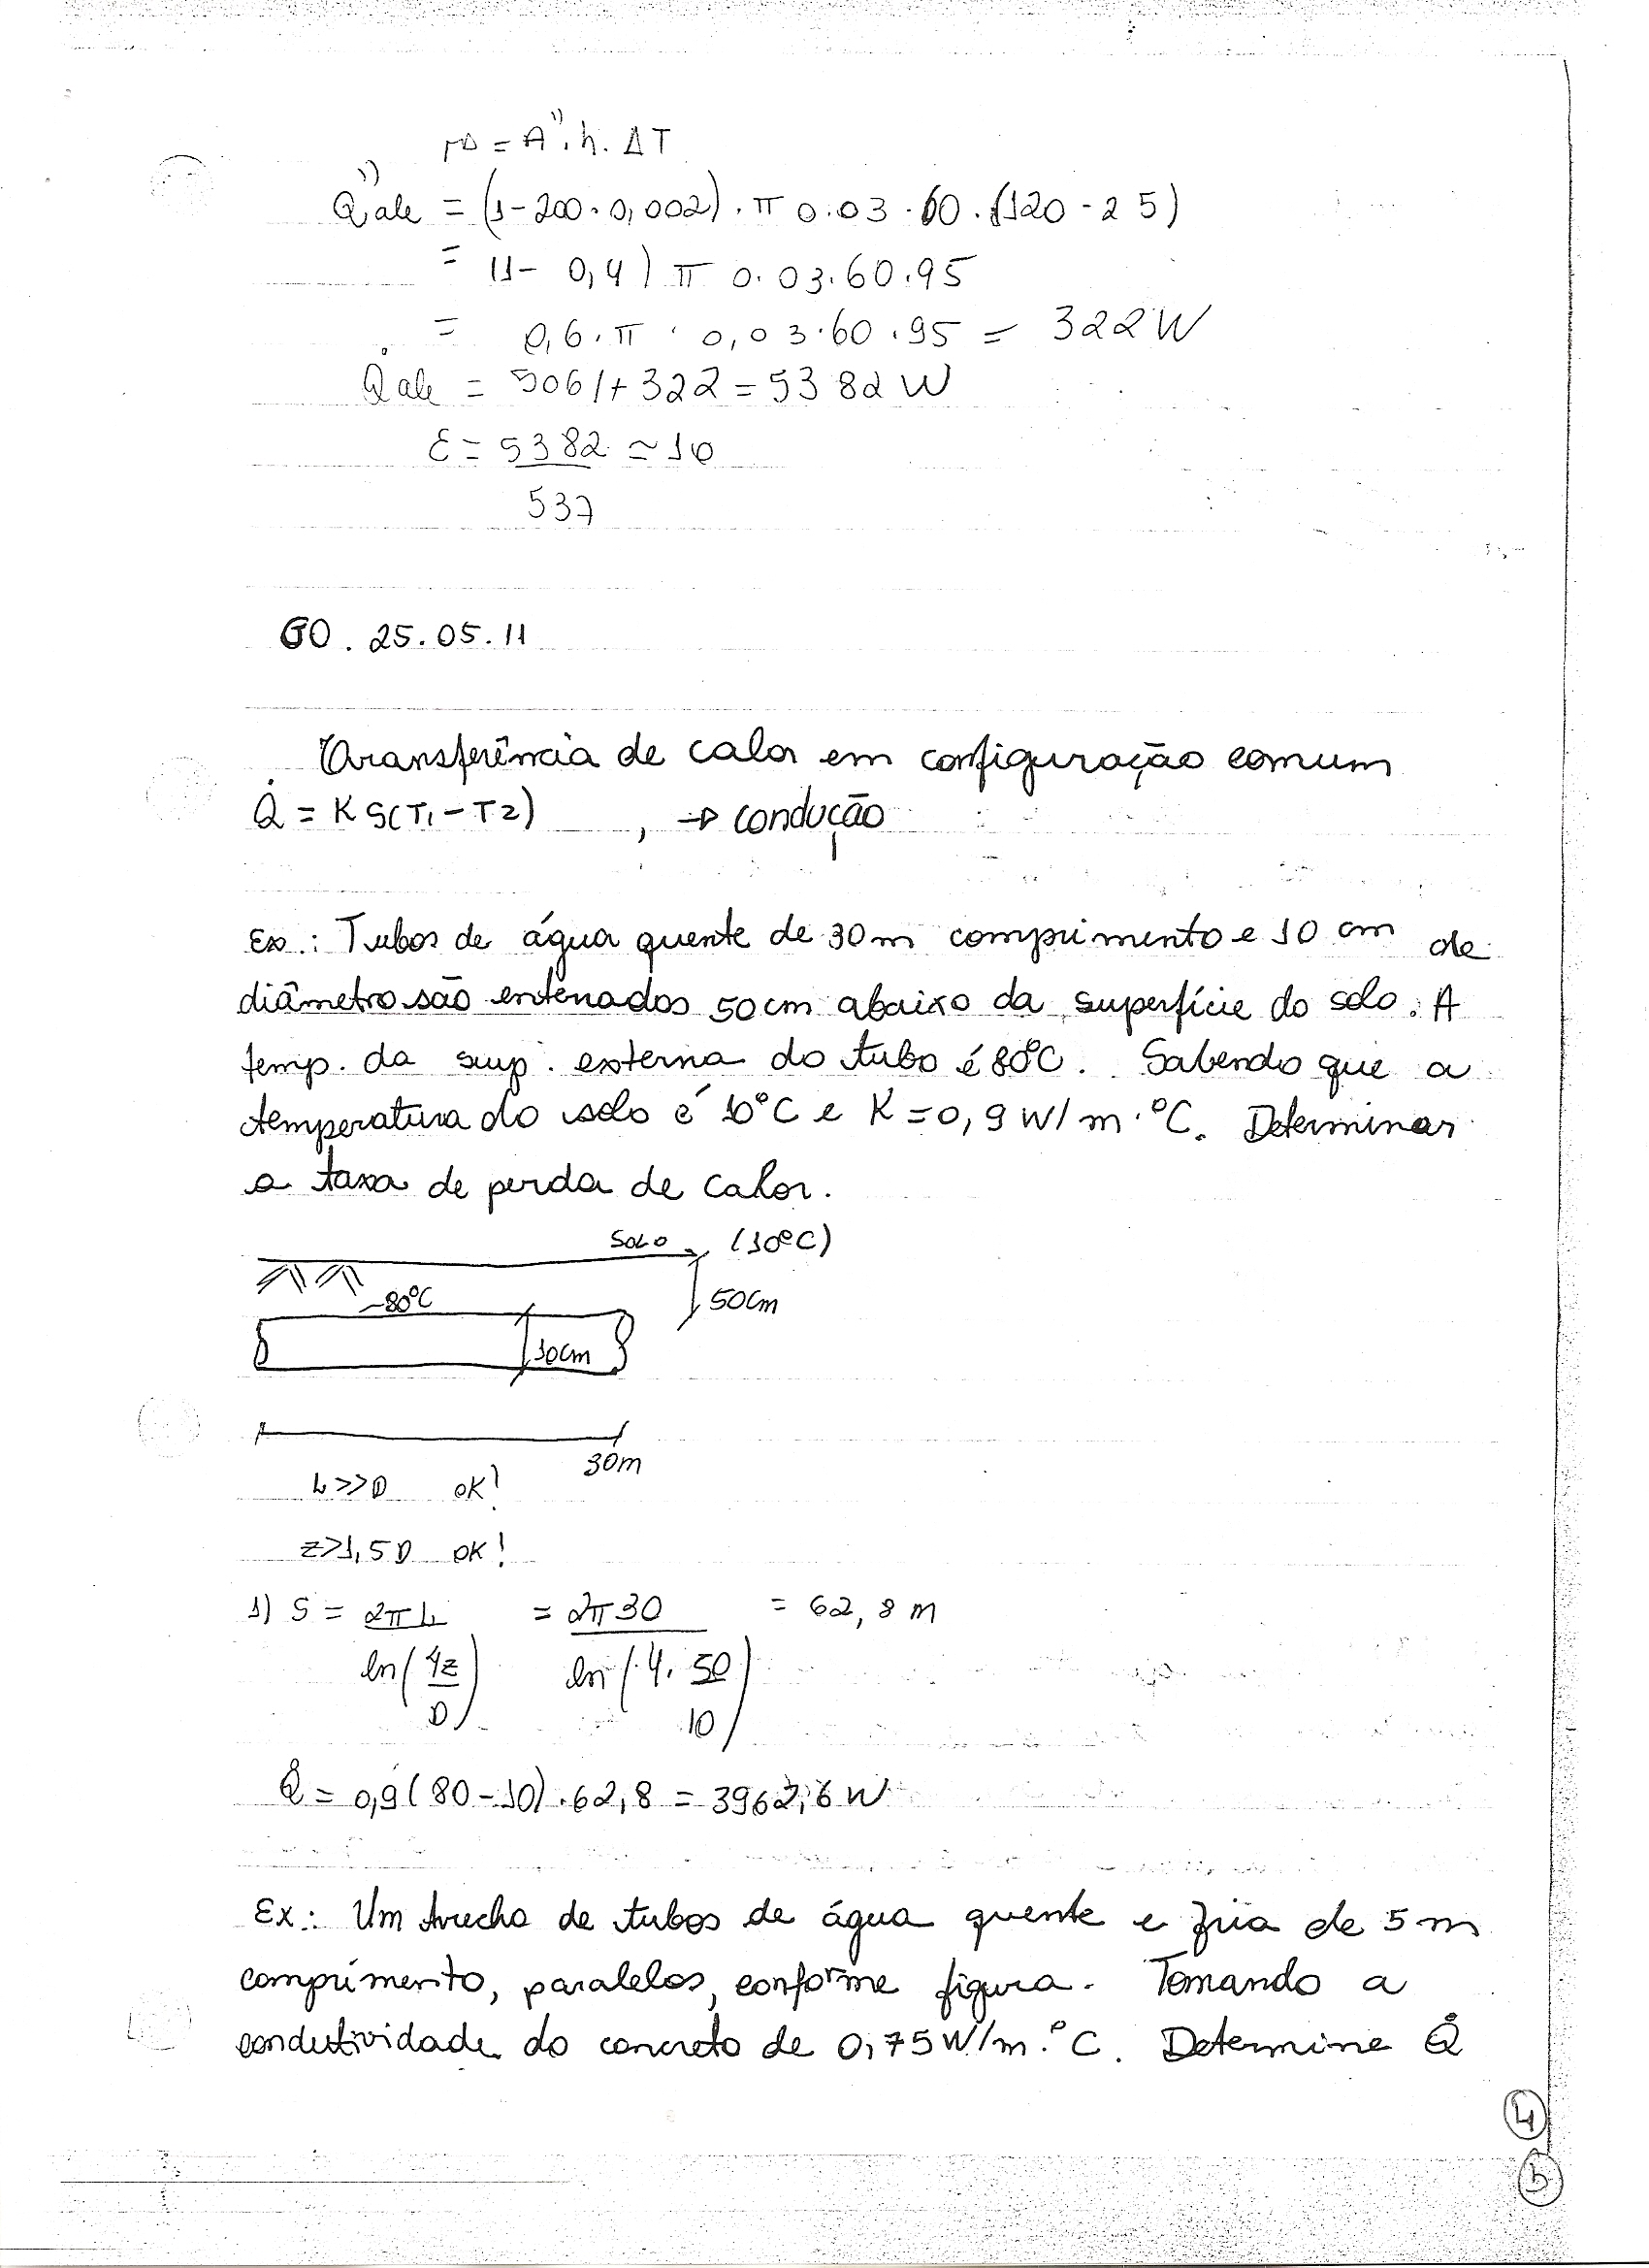 = A''.h.ΔT
Q''ale = (1-200.0,002).π 0.03.60.(120-25)
= (1-0,4) π 0.03.60.95
= 0,6.π.0,03.60.95 = 322W
Q̇ale = 5061+322=5382W
ε = 5382 ≃ 10
537
GO. 25.05.11
Transferência de calor em configuração comum
Q̇ = KS(T1-T2) , → condução
Ex.: Tubos de água quente de 30m comprimento e 10 cm de
diâmetro são enterrados 50cm abaixo da superfície do solo. A
temp. da sup. externa do tubo é 80°C. Sabendo que a
temperatura do solo é 10°C e K=0,9 W/m.°C. Determinar
a taxa de perda de calor.
SOLO (10°C)
~80°C
50cm
10cm
30m
L>>D OK!
z>1,5D OK!
1) S = 2πL = 2π30 = 62,8 m
ln(4z/D) ln(4.50/10)
Q̇ = 0,9(80-10).62,8 = 3962,6W
Ex: Um trecho de tubos de água quente e fria de 5m
comprimento, paralelos, conforme figura. Tomando a
condutividade do concreto de 0,75W/m.°C. Determine Q̇
4
5